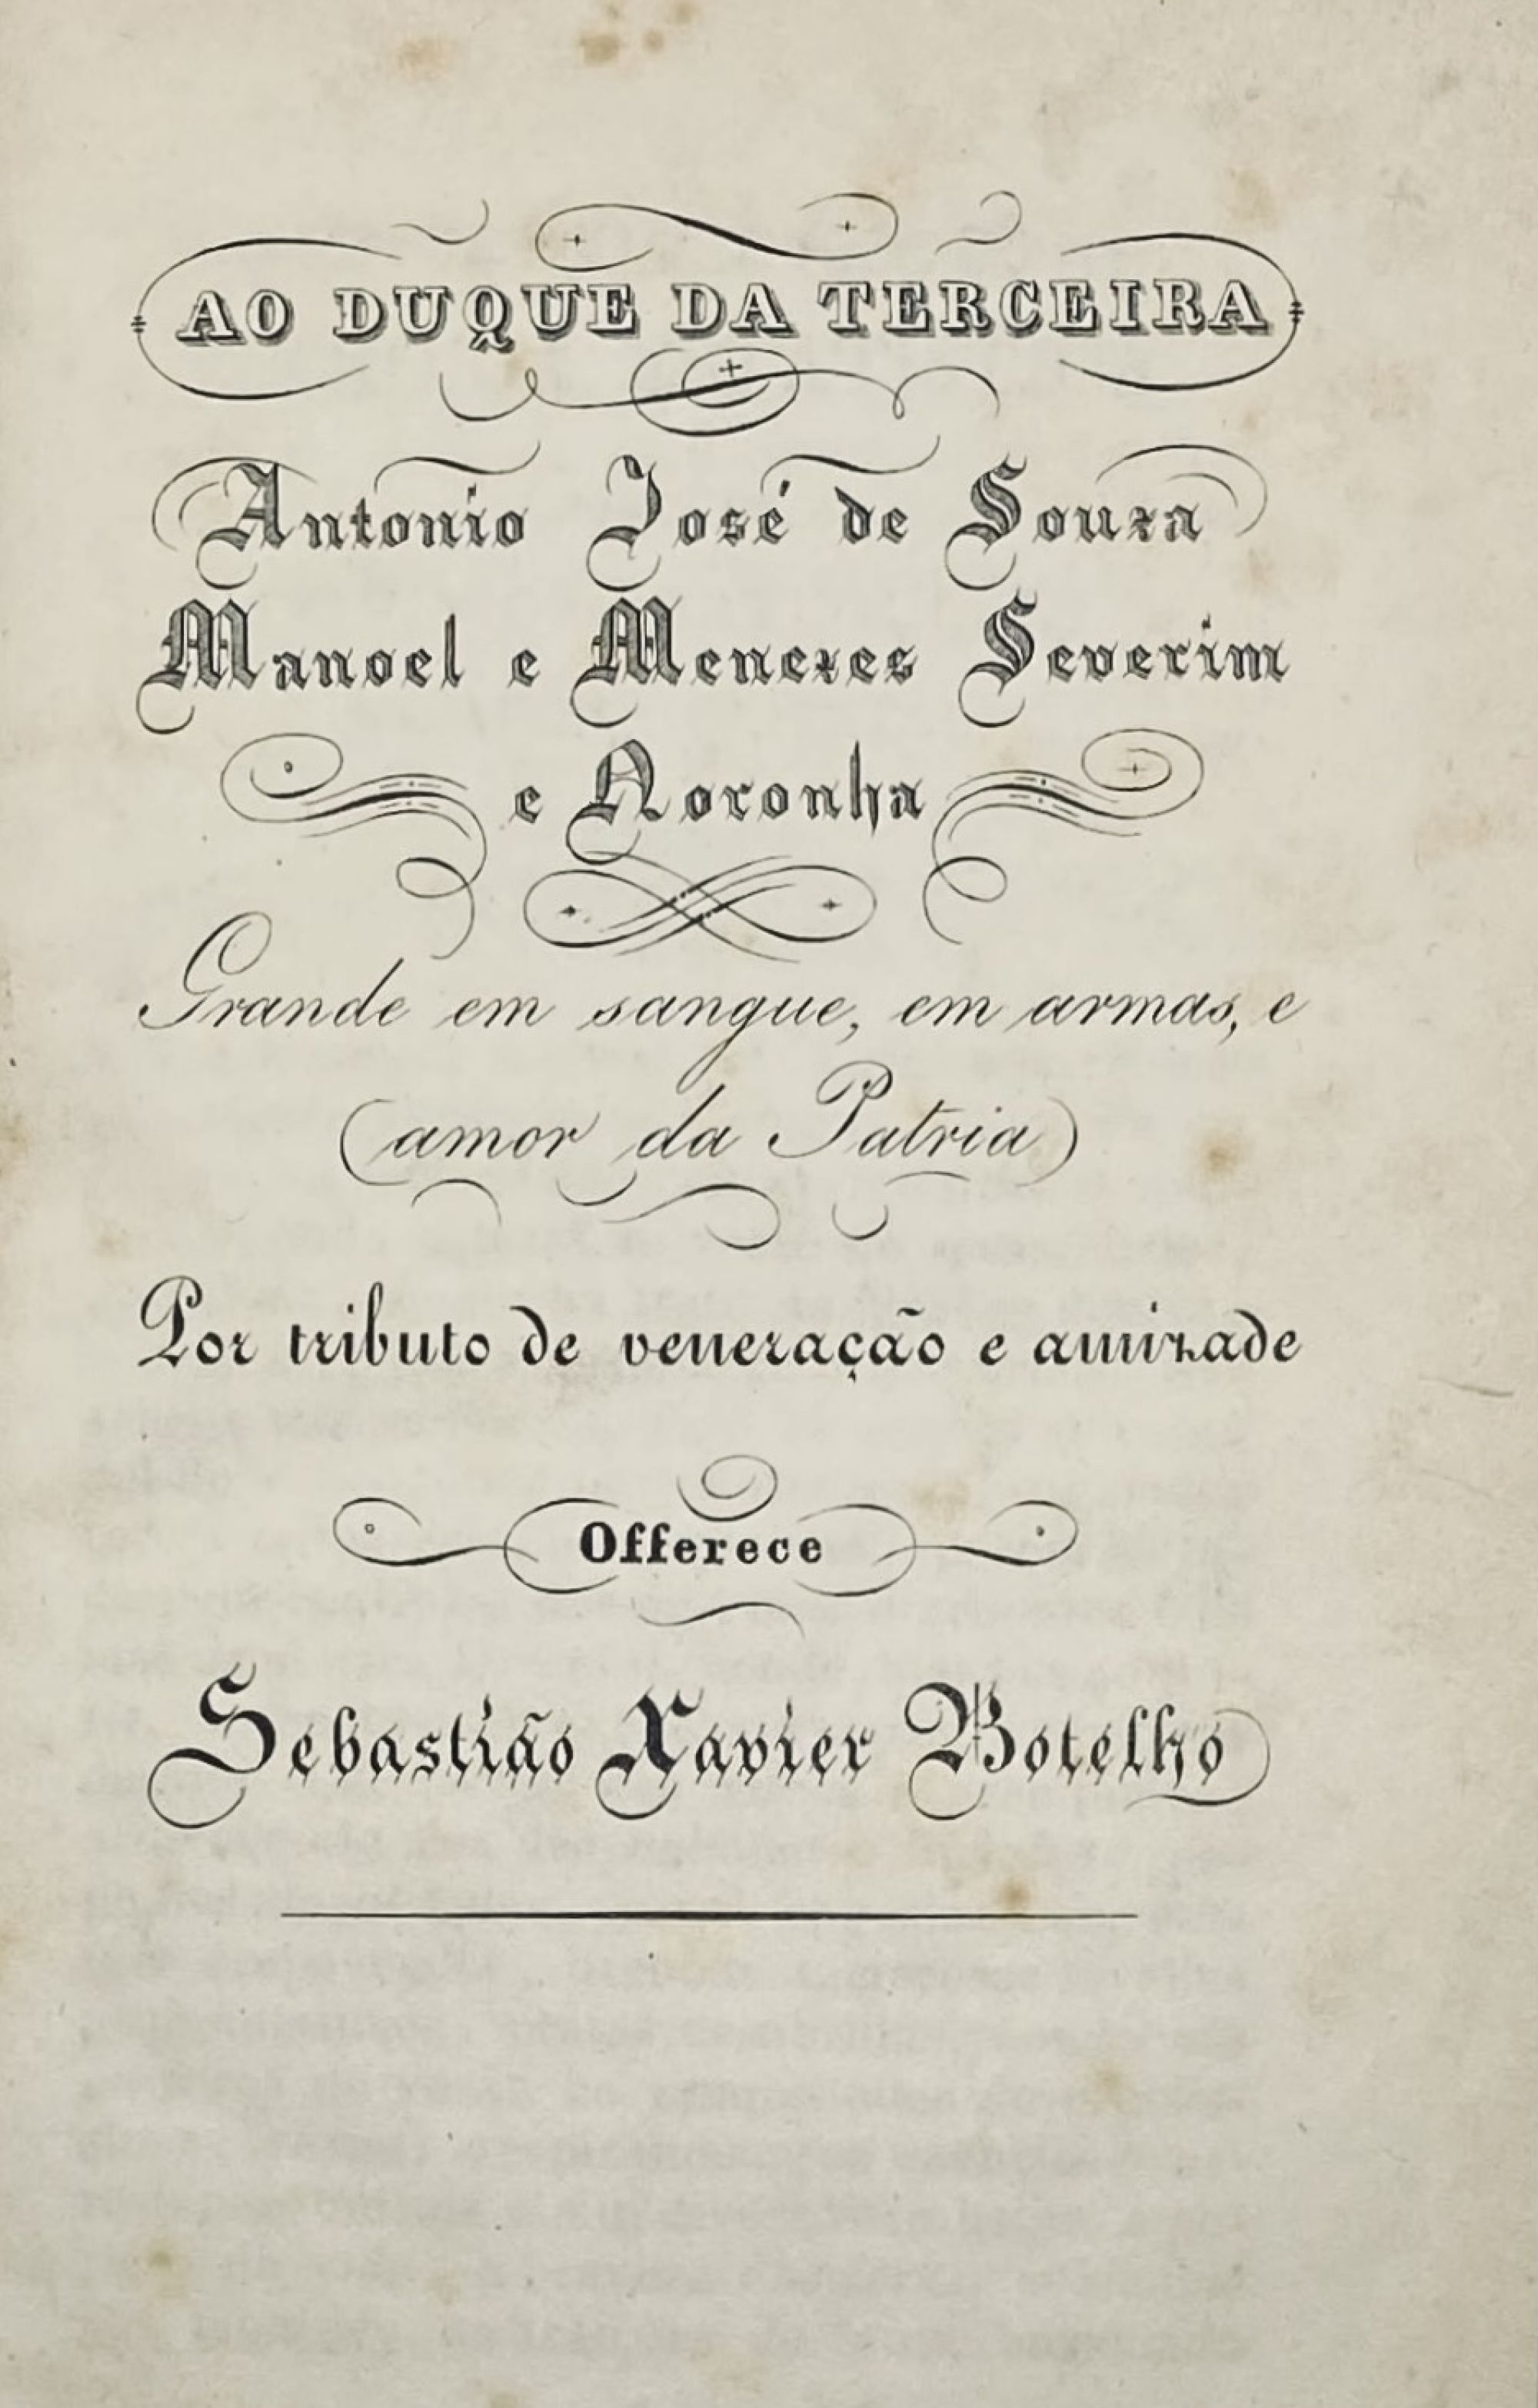 AO DUQUE DA TERCEIRA
Antonio José de Souza
Manoel e Menezes Severim
e Noronha
Grande em sangue, em armas, e
(amor da Patria)
Por tributo de veneração e amizade
Offerece
Sebastião Xavier Botelho